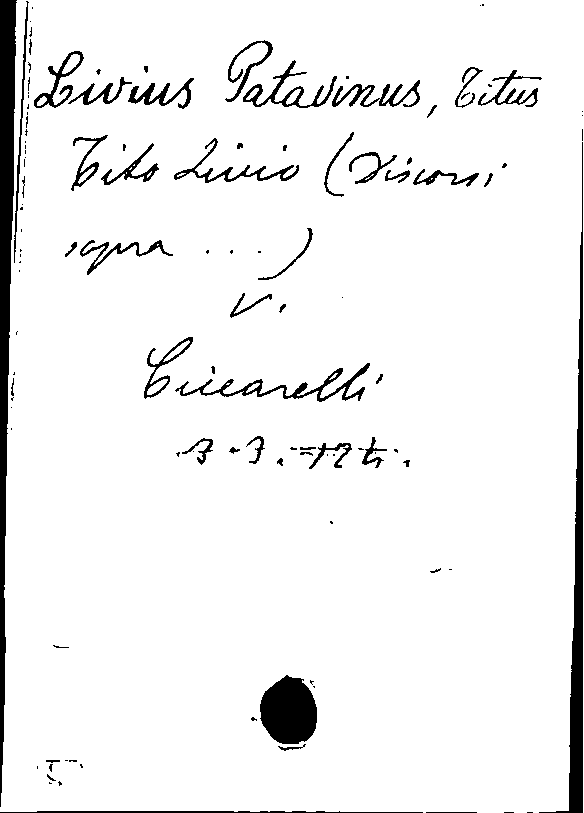 Livius Patavinus, Titus
Tito Livio (Discorsi
sopra ...)
v.
Ciccarelli